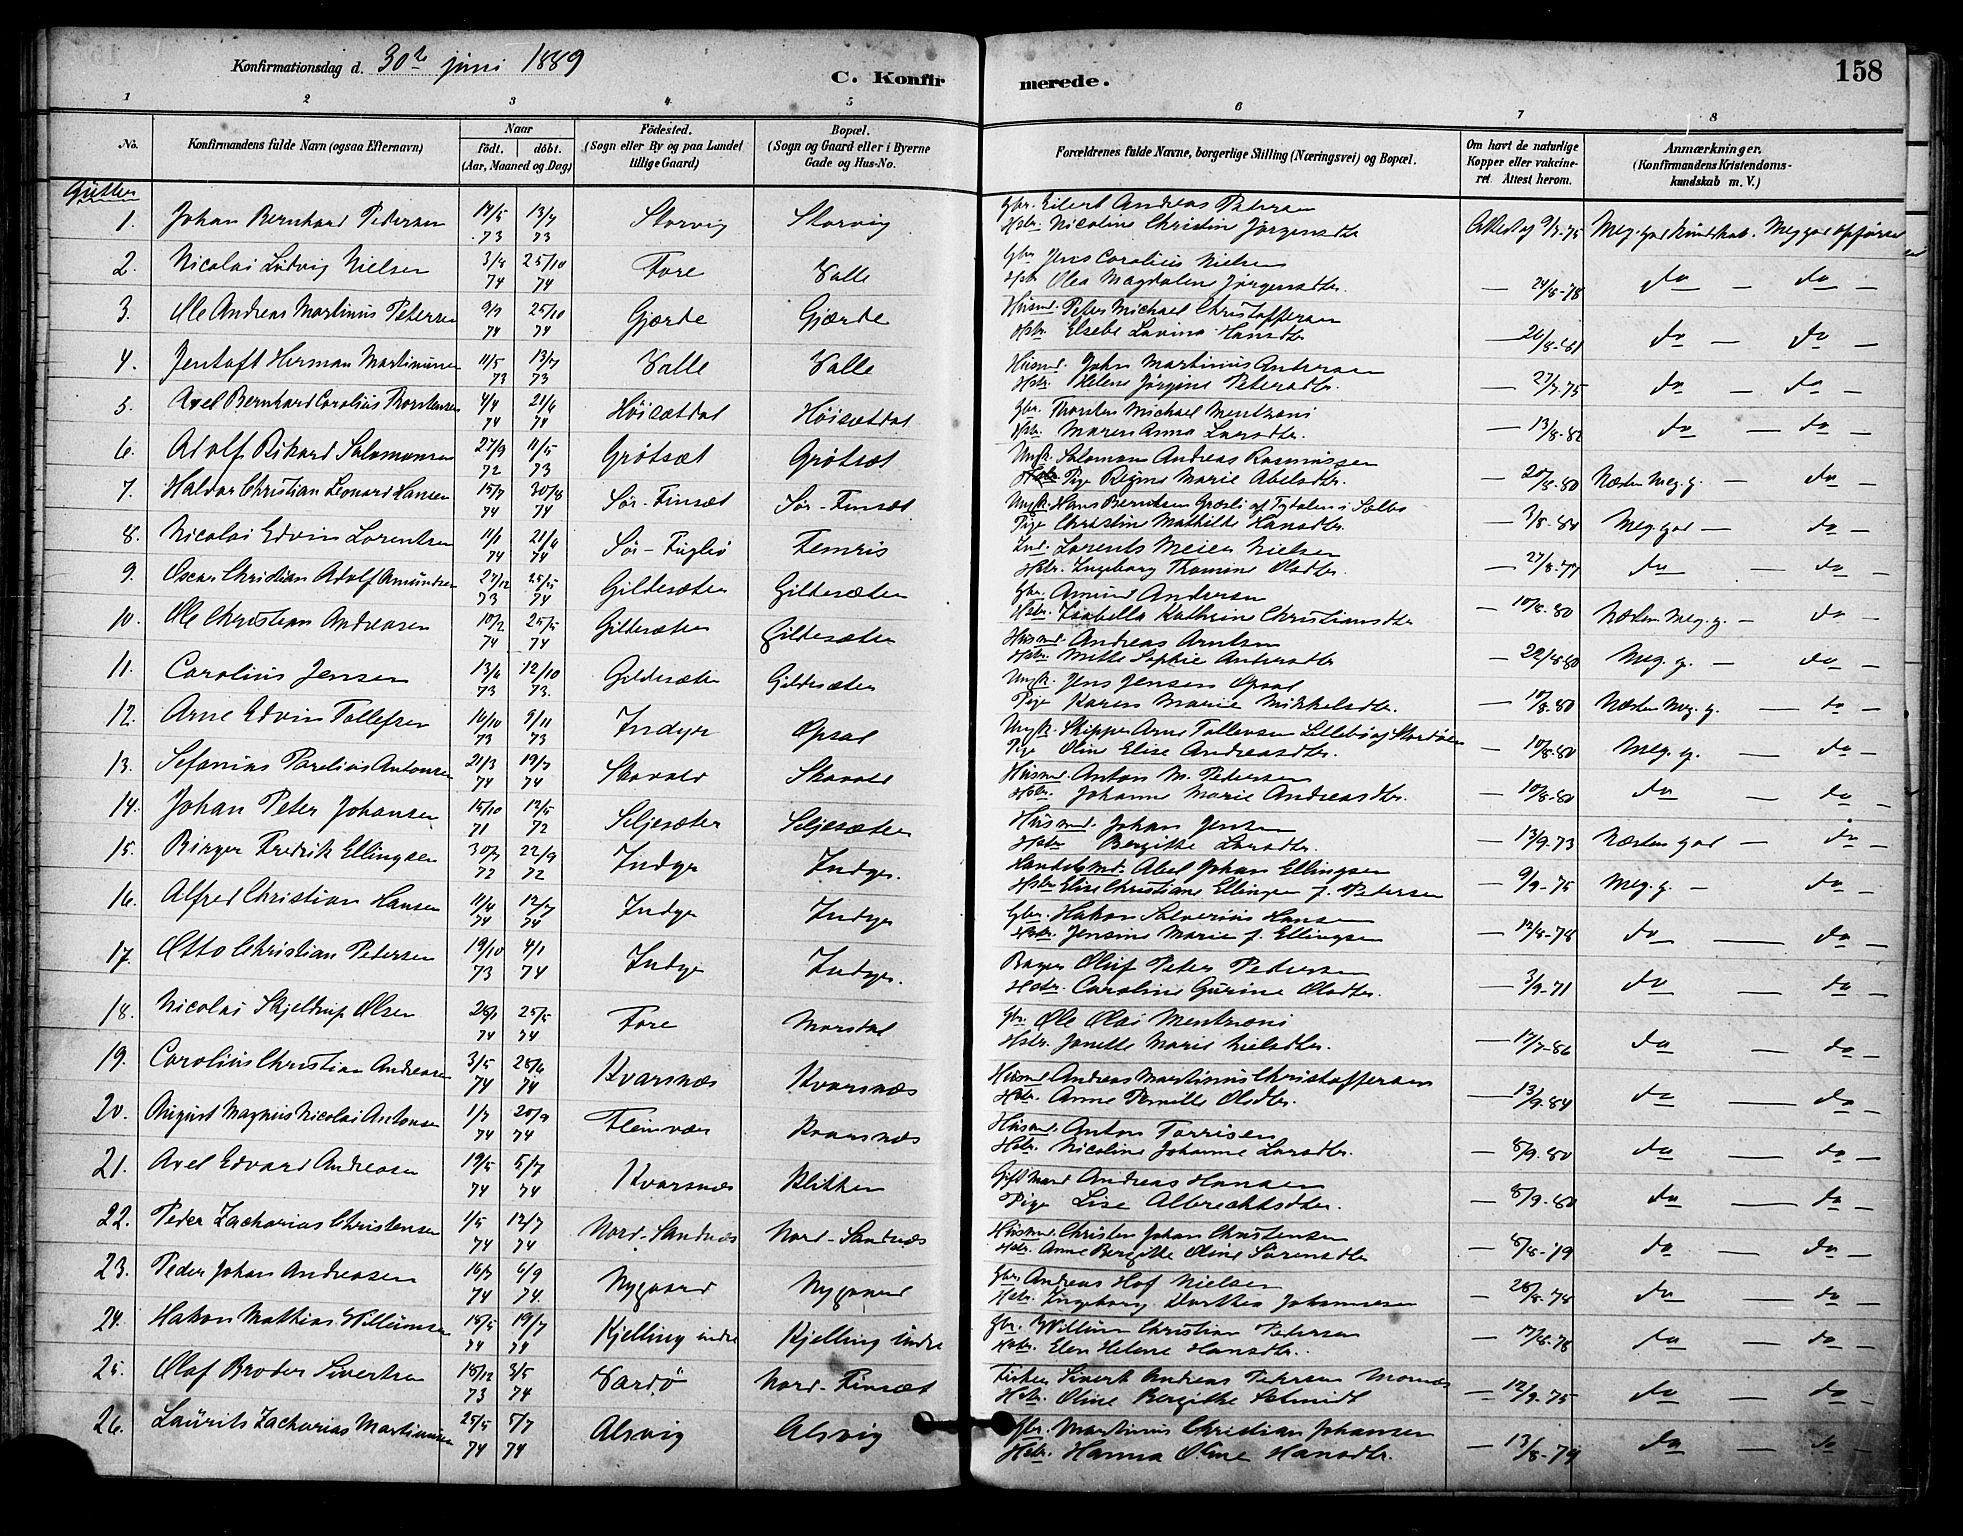 Konfirmationsdag d. 30te juni 1889
C. Konfirmerede.
158
1 2 3 4 5 6 7 8
No. Konfirmandens fulde Navn (ogsaa Efternavn) Naar födt. döbt. (Aar, Maaned og Dag) Födested. (Sogn eller By og paa Landet tillige Gaard) Bopæl. (Sogn og Gaard eller i Byerne Gade og Hus-No. Forældrenes fulde Navne, borgerlige Stilling (Næringsvei) og Bopæl. Om havt de naturlige Kopper eller vakcineret. Attest herom. Anmærkninger. (Konfirmandens Kristendomskundskab m. V.)
Gutter
1. Johan Bernhard Pedersen 14/5 73 13/7 73 Storvig Storvig Gbr. Eilert Andreas Petersen Hstr. Nicoline Christin Jørgensdtr Attest af 9/9-75 Meg. god kundskab. Meg god opførsel
2. Nicolai Ludvig Nielsen 3/8 74 25/10 74 Fore Valle Gbr Jens Corolius Nielsen Hstr Olea Magdalene Jørgensdtr. — 24/8-78 do — do —
3. Ole Andreas Martinus Petersen 9/9 74 25/10 74 Gjærde Gjærde Husmd. Peter Michael Christoffersen Hstr. Elsebe Lavina Hansdtr — 26/8-81 do — do —
4. Jentoft Herman Martinussen 11/5 73 13/7 73 Valle Valle Husmd. John Martinus Andersen Hstr. Helene Jørgine Petersdtr. — 27/9-75 do — do —
5. Axel Bernhard Carolius Thorstensen 4/4 74 21/6 74 Höisætdal Höisætdal Gbr. Thorsten Michael Mentzoni Hstr. Maren Anna Larsdtr. — 13/8-82 do — do —
6. Adolf Rikard Salomonsen 27/9 72 11/5 73 Grötsæt Grötsæt Ungk. Salomon Andreas Rasmussen Pige Regine Marie Abelsdtr. — 20/8-80 Næsten meg. g. — do
7. Haldor Christian Leonard Hansen 15/7 74 30/8 74 Sör-Finsæt Sör-Finsæt Ungk. Hans Berntsen Græsli af Tydalen i Selbo Pige Christine Mathilde Hansdtr. — 3/8-84 Meg. god — do
8. Nicolai Edvin Lorentsen 11/1 74 21/6 74 Sör-Fuglö Femris Ind. Lorents Meier Nielsen Hstr. Ingeborg Thomine Olsdtr. — 27/8-77 do — do —
9. Oscar Christian Adolf Amundsen 27/12 73 25/5 74 Gildesæten Gildesæten Gbr. Amund Andersen Hstr. Isabella Kathrine Christiansdtr — 10/8-80 Næsten meg. g. — do
10. Ole Christian Andreasen 10/2 74 25/5 74 Gildesæten Gildesæten Husmd. Andreas Arntsen Hstr. Mette Sophie Andersdtr — 22/8-80 Meg. g. — do —
11. Carolius Jensen 13/4 73 12/10 73. Gildesæten Gildesæten Ungk. Jens Jensen Opsal Pige Karen Marie Mikkelsdtr. — 10/8-80 Næsten Meg. g. — do —
12. Arne Edvin Tollefsen 16/10 73 9/11 73 Indyr Opsal Ungk. Skipper Arne Tollevsen Lillebö af Stordöen Pige Olin Elise Andreasdtr. — 10/8-80 Meg. g. — do —
13. Sefanias Parelius Antonsen 21/3 74 19/7 74 Skavold Skavold Husmd. Anton M. Pedersen Hstr. Johanne Marie Andreasdtr. — 10/8-80 do — do —
14. Johan Peter Johansen 15/10 71 12/5 72 Seljesæter Seljesæter Husmd. Johan Jensen Hstr Bergitte Larsdtr. — 13/9-73 Næsten god — do
15. Birger Fredrik Ellingsen 30/7 72 22/9 72 Indyr Indyr. Handelsmd. Abel Johan Ellingsen Hstr Elise Christiane Ellingsen f. Petersen — 9/9-75 Meg. g. — do —
16. Alfred Christian Hansen 11/4 74 12/7 74 Indyr Indyr. Gbr. Hakon Salverius Hansen Hstr. Jensine Marie f. Ellingsen — 12/8-78 do — do —
17. Otto Christian Pedersen 19/10 73 4/1 74 Indyr Indyr. Bager Oluf Peter Pedersen Hstr. Caroline Gurine Olsdtr. — 3/9-71 do — do —
18. Nicolai Skjeldrup Olsen 28/1 74 25/5 74 Fore Morsdal Gbr. Ole Olai Mentzoni Hstr. Janette Marie Nielsdtr. — 17/7-86 do — do —
19. Carolius Christian Andreasen 3/5 74 28/6 74 Kvarsnæs Kvarsnæs Husmd Andreas Martinus Christoffersen Hstr. Anne Pernille Olsdtr. — 13/9-84 do — do —
20. August Magnus Nicolai Antonsen 1/7 74 20/9 74 Fleinvær Kvarsnæs Husmd Anton Torrisen Hstr. Nicoline Johanne Larsdtr. — 8/9-80 do — do —
21. Axel Edvard Andreasen 19/5 74 5/7 74 Kvarsnæs Klitten Gift Mand Andreas Hansen Pige Lise Albrechtsdtr. — 8/9-80 do — do —
22. Peder Zacharias Christensen 1/5 74 12/7 74 Nord-Sandnæs Nord-Sandnæs Husmd Christen Johan Christensen Hstr. Anne Bergitte Oline Sörensdtr — 8/8-79 do — do —
23. Peder Johan Andreasen 16/7 74 6/9 74. Nygaard Nygaard Gbr. Andreas Hof Nielsen Hstr. Ingeborg Dorthea Johannesen — 28/8-78 do — do —
24. Hakon Mathias Willumsen 18/5 74 19/7 74 Kjelling indre Kjelling indre Gbr. Willum Christian Pedersen Hstr. Elen Helene Hansdtr. — 17/8-78 do — do —
25. Olaf Broder Sivertsen 18/12 73 3/5 74 Vardö Nord-Finsæt Fisker Sivert Andreas Petersen Mornæs Hstr. Oline Bergitte Schmidt — 12/9-75 do — do —
26. Laurits Zacharias Martinussen 25/5 74 5/7 74 Alsvig Alsvig Gbr. Martinus Christian Johansen Hstr. Hanna Oline Hansdtr. — 13/8-79 do — do —